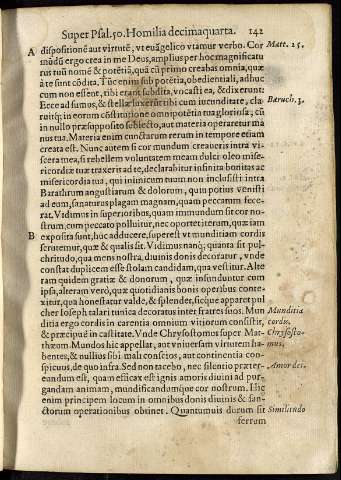 Super Psal. 50. Homilia decimaquarta. 142
A dispositionē aut virtutē, vt euāgelico vtamur verbo. Cor Matt. 25.
mūdū ergo crea in me Deus, amplius per hoc magnificatu
rus tuū nomē & potētiā, quā cū primo creabas omnia, quæ
à te sunt cōdita. Tūc enim sub potētia, obedientiali, adhuc
cum non essent, tibi erant subdita, vocasti ea, & dixerunt:
Ecce adsumus, & stellæ luxerūt tibi cum iucunditate, cla- Baruch. 3.
ruitq; in eorum cōstitutione omnipotētia tua gloriosa; cū
in nullo præsupposito subiecto, aut materia operaretur ma
nus tua. Materia enim cunctarum rerum in tempore etiam
creata est. Nunc autem si cor mundum creaueris intra vi-
scera mea, si rebellem voluntatem meam dulci oleo mise-
ricordiæ tuæ traxeris ad te, declarabitur infinita bonitas ac
misericordia tua, qui inimicum tuum non inclusisti intra
Barathrum angustiarum & dolorum, quin potius venisti
ad eum, sanaturus plagam magnam, quam peccatum fece-
rat. Vidimus in superioribus, quam immundum sit cor no-
strum, cum peccato polluitur, nec oportet iterum, quæ iam
B exposita sunt, huc adducere, superest vt munditiam cordis
scrutemur, quæ & qualis sit. Vidimus nanq; quanta sit pul-
chritudo, qua mens nostra, diuinis donis decoratur, vnde
constat duplicem esse stolam candidam, qua vestitur. Alte
ram quidem gratiæ & donorum, quæ infunduntur cum
ipsa, alteram verò, quæ quotidianis bonis operibus conte-
xitur, qua honestatur valde, & splendet, sicque apparet pul
cher Ioseph talari tunica decoratus inter fratres suos. Mun Munditia
ditia ergo cordis in carentia omnium vitiorum consistit, cordis.
& præcipuè in castitate. Vnde Chrysostomus super Mat- Chrysosto-
thæum. Mundos hic appellat, aut vniuersam virtutem ha- mus.
bentes, & nullius sibi mali conscios, aut continentia con-
spicuos, de quo infra. Sed non tacebo, nec silentio præter- Amor dei.
eandum est, quam efficax est ignis amoris diuini ad pur-
gandam animam, mundificandumque cor nostrum. Hic
enim principem locum in omnibus donis diuinis & san-
ctorum operationibus obtinet. Quantumuis durum sit Similitudo
ferrum